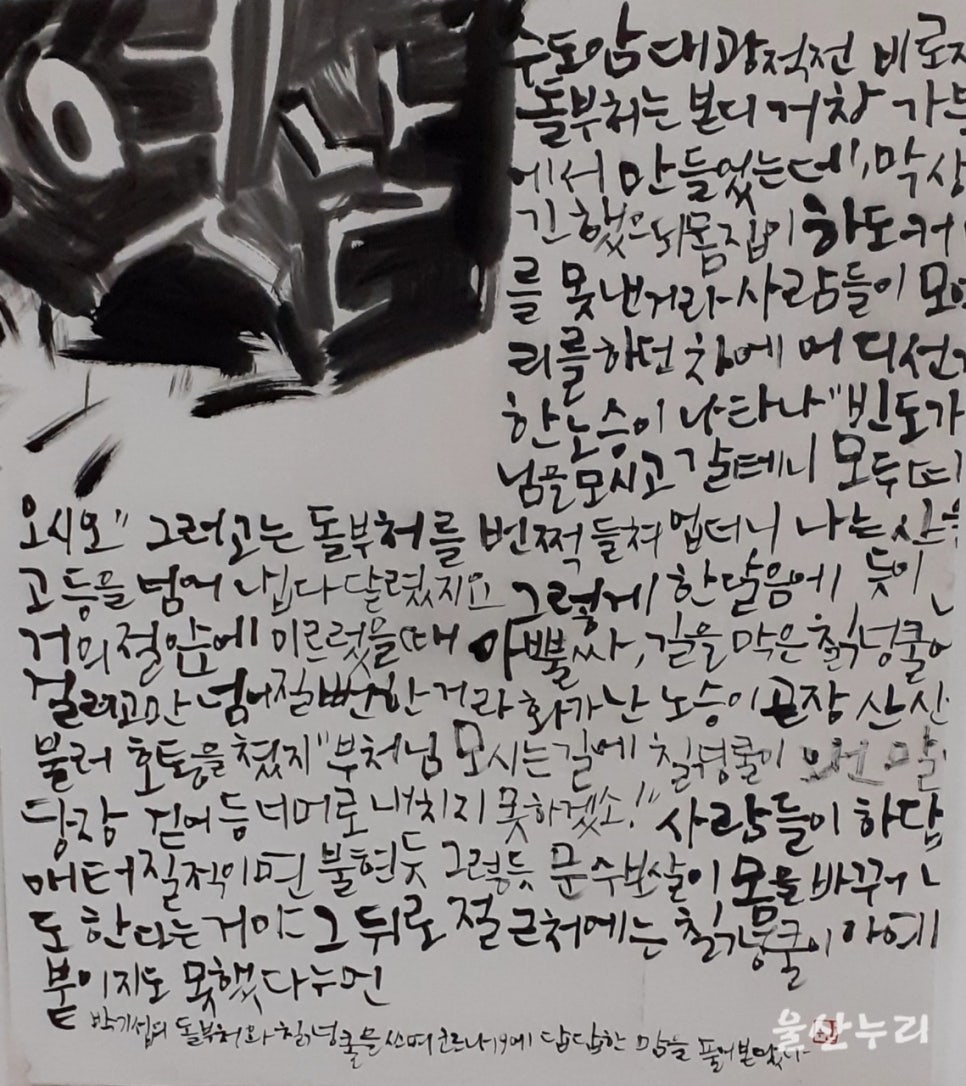 옛날
수도암 대광적전 비로자
돌부처는 본디 거창 가북
에서 만들었는데, 막상
긴 했으되 몸집이 하도 커
를 못 낸 거라 사람들이 모여
리를 하던 차에 어디선가
한 노승이 나타나 "빈도가
님을 모시고 갈 테니 모두 따라
오시오" 그러고는 돌부처를 번쩍 들쳐 업더니 나는 듯이 산
고 등을 넘어 냅다 달렸지요 그렇게 한달음에
거의 절 앞에 이르렀을 때 아뿔싸, 길을 막은 칡넝쿨에
걸려 고만 넘어질 뻔한 거라 화가 난 노승이 곧장 산신
불러 호통을 쳤지 "부처님 모시는 길에 칡넝쿨이 웬 말
당장 걷어 등 너머로 내치지 못하겠소!" 사람들이 하 답
애터질 적이면 불현듯 그렇듯 문수보살이 몸을 바꾸어
도 한다는 거야 그 뒤로 절 근처에는 칡넝쿨이 아예
붙이지도 못했다누먼
박기섭의 돌부처와 칡넝쿨을 쓰며 코로나19에 답답한 맘을 풀어본다
울산누리